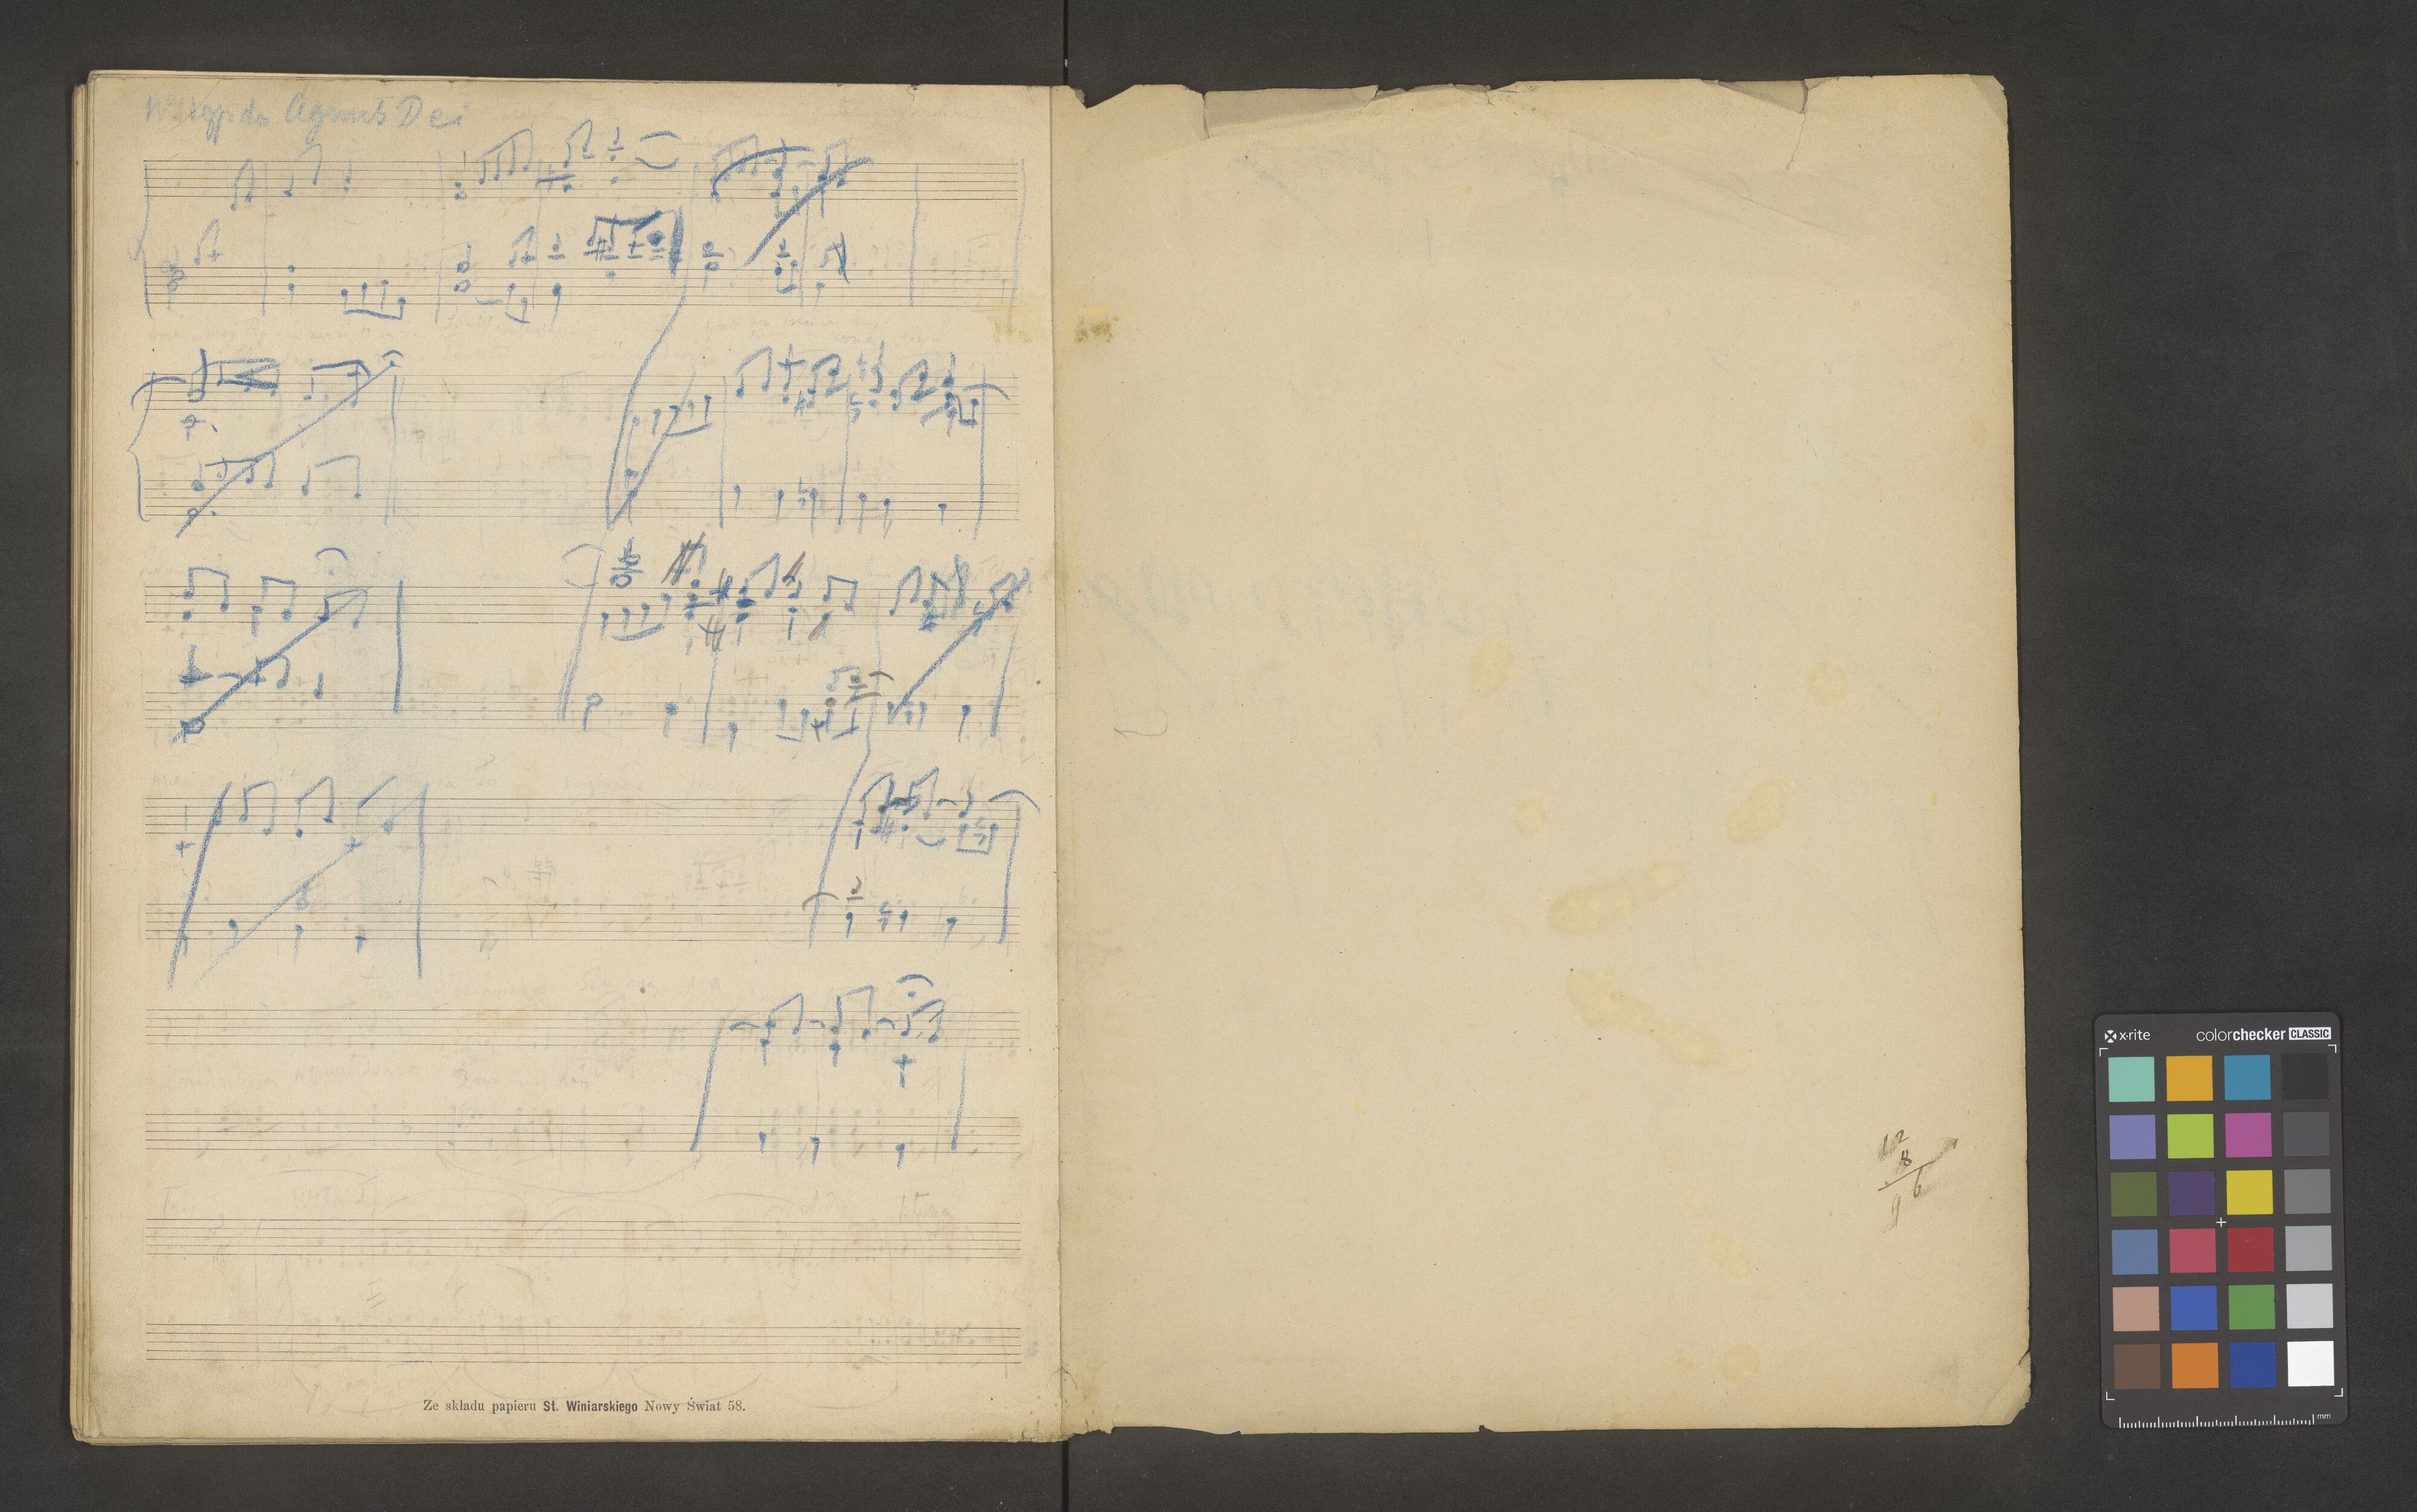 Wstęp do Agnus Dei
Ze składu papieru St. Winiarskiego Nowy Świat 58.
12
8
96
x-rite colorchecker CLASSIC
mm